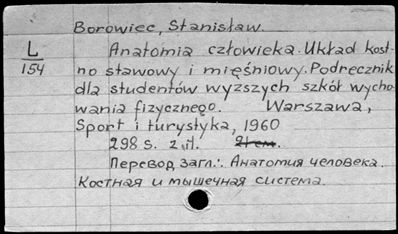 Borowiec, Stanisław.
L
154
Anatomia człowieka. Układ kost-
no stawowy i mięśniowy. Podręcznik
dla studentów wyższych szkół wycho-
wania fizycznego. Warszawa,
Sport i turystyka, 1960
298 s. z il.
Перевод загл.: Анатомия человека.
Костная и мышечная система.